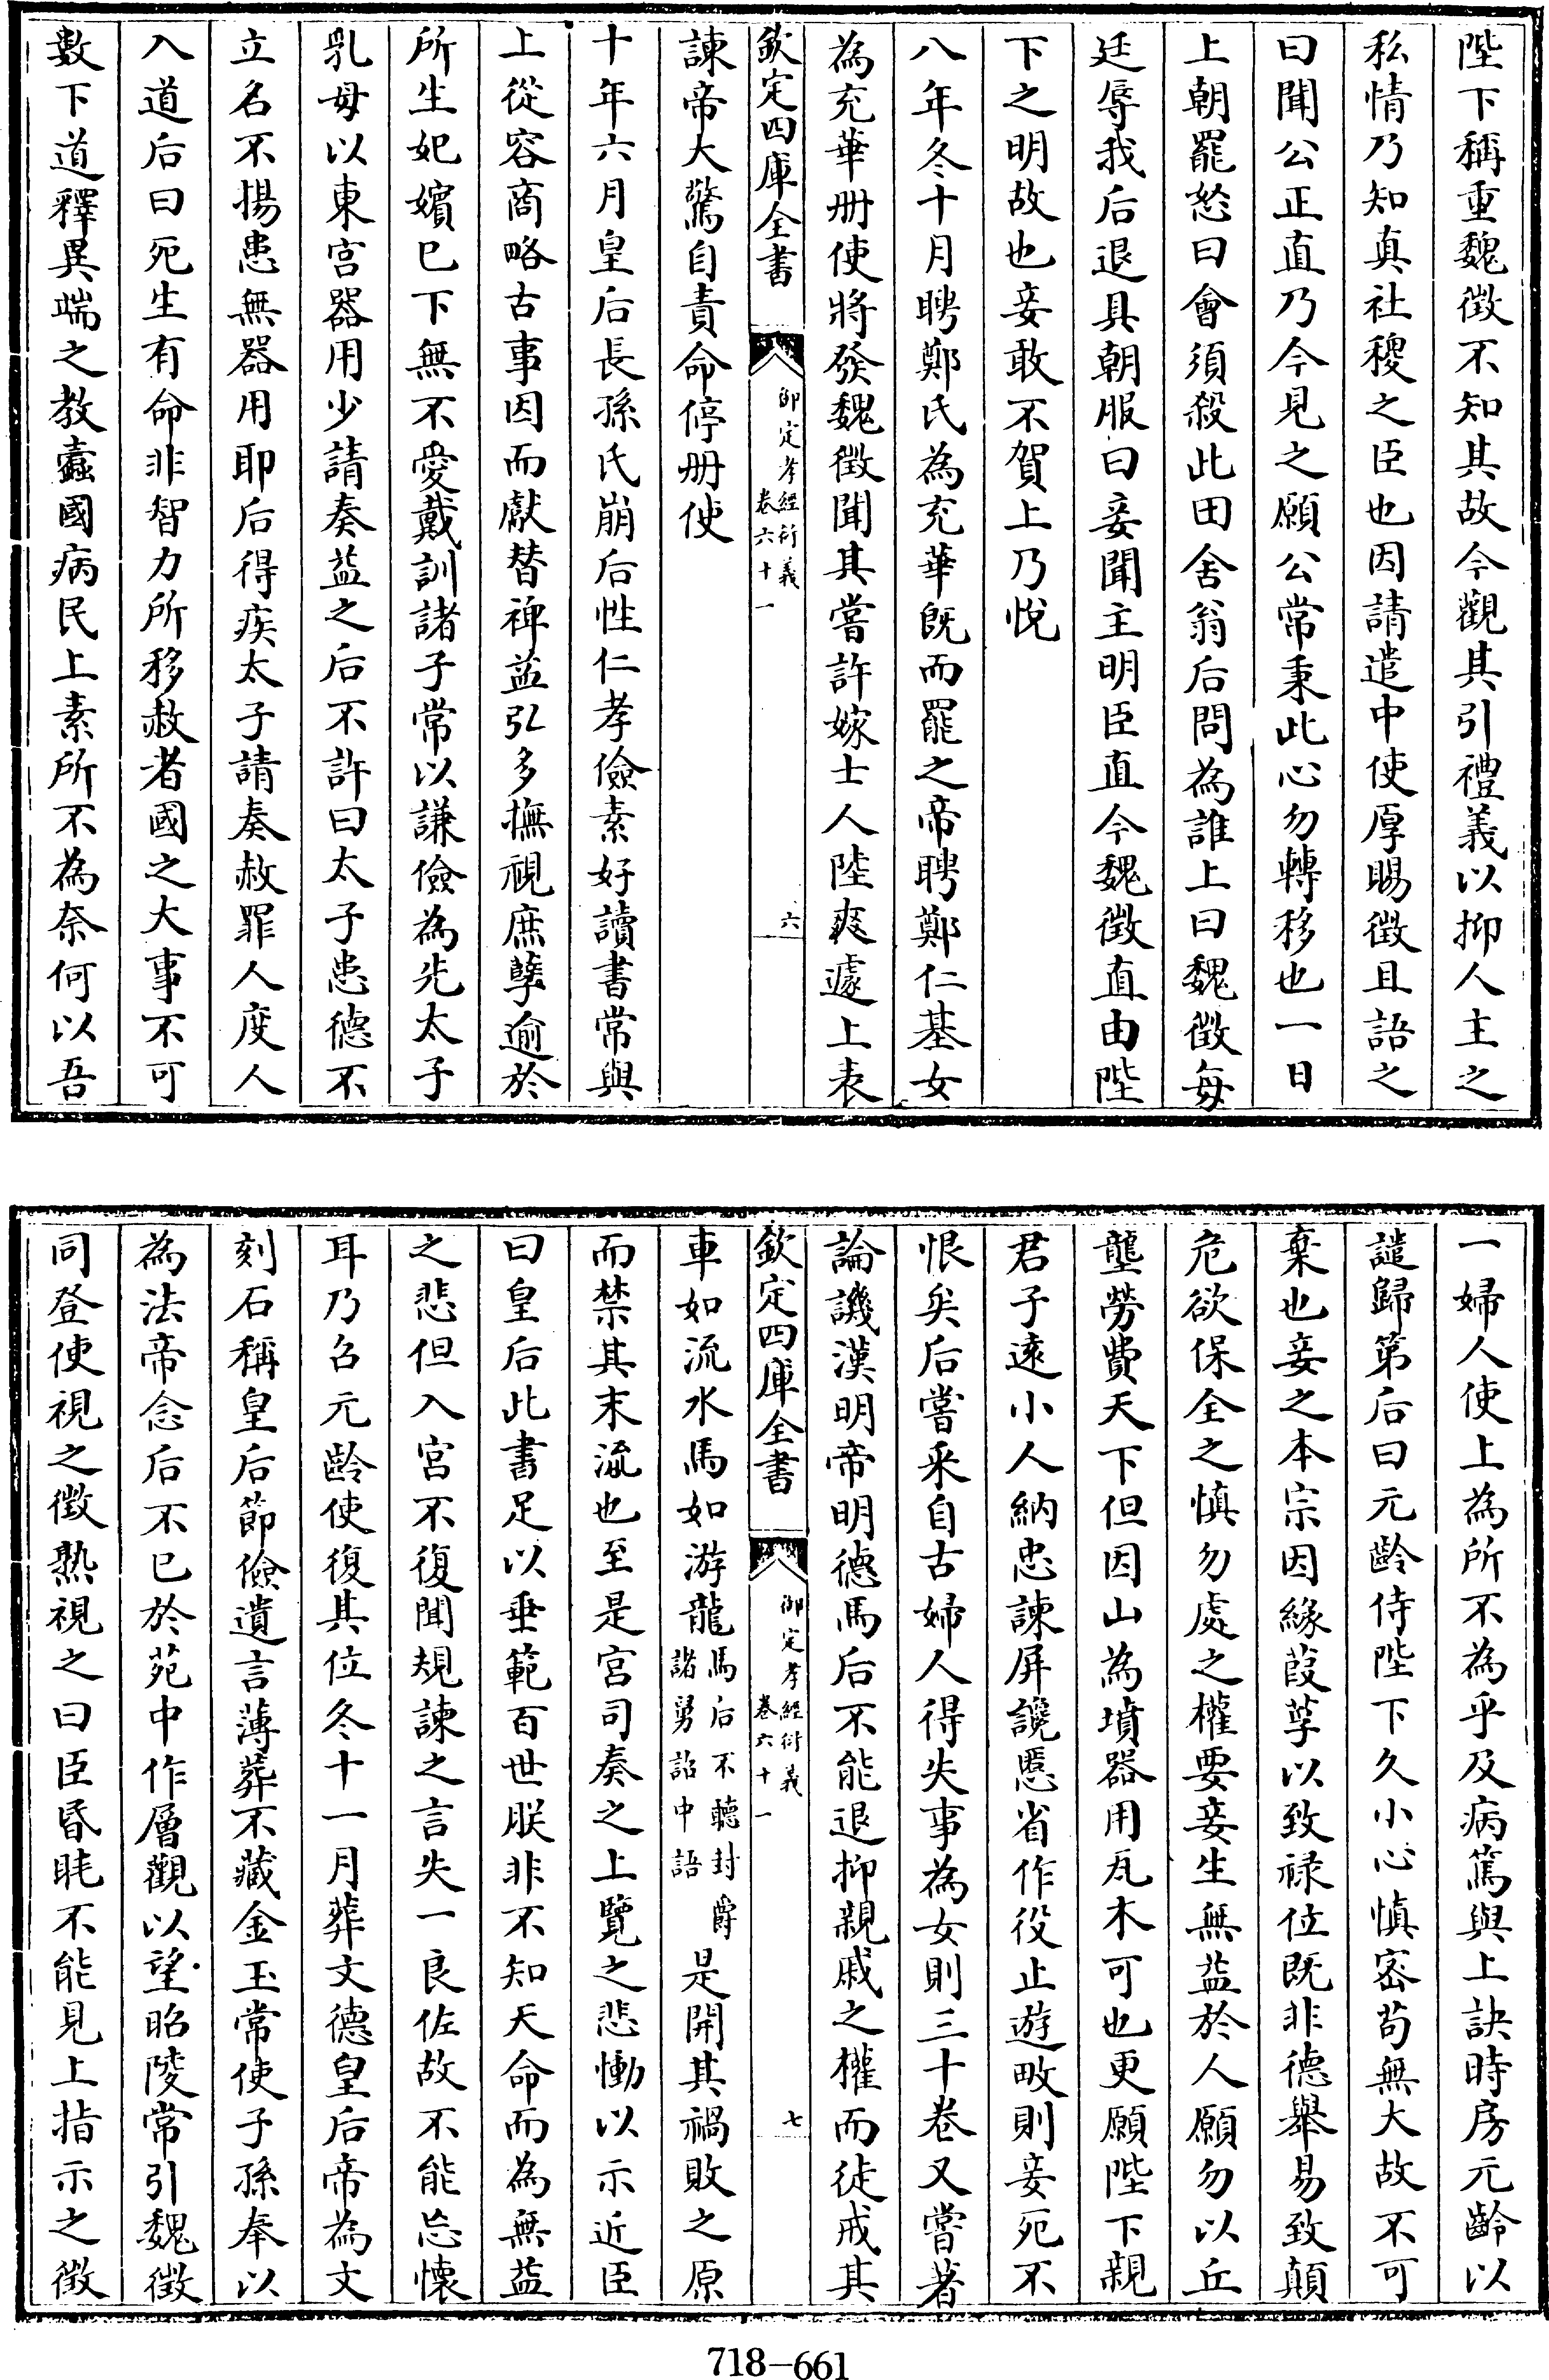 陛下稱重魏徵不知其故今觀其引禮義以抑人主之
私情乃知真社稷之臣也因請遣中使厚賜徵且語之
曰聞公正直乃今見之願公常秉此心勿轉移也一日
上朝罷怒曰會須殺此田舍翁后問為誰上曰魏徵每
廷辱我后退具朝服曰妾聞主明臣直今魏徵直由陛
下之明故也妾敢不賀上乃悅
八年冬十月聘鄭氏為充華既而罷之帝聘鄭仁基女
為充華冊使將發魏徵聞其嘗許嫁士人陸爽遽上表
欽定四庫全書
御定孝經衍義
卷六十一
六
諫帝大驚自責命停冊使
十年六月皇后長孫氏崩后性仁孝儉素好讀書常與
上從容商略古事因而獻替裨益弘多撫視庶孽逾於
所生妃嬪已下無不愛戴訓諸子常以謙儉為先太子
乳母以東宮器用少請奏益之后不許曰太子患德不
立名不揚患無器用耶后得疾太子請奏赦罪人度人
入道后曰死生有命非智力所移赦者國之大事不可
數下道釋異端之教蠹國病民上素所不為奈何以吾
一婦人使上為所不為乎及病篤與上訣時房元齡以
譴歸第后曰元齡侍陛下久小心慎密苟無大故不可
棄也妾之本宗因緣葭莩以致祿位既非德舉易致顛
危欲保全之慎勿處之權要妾生無益於人願勿以丘
壟勞費天下但因山為墳器用瓦木可也更願陛下親
君子遠小人納忠諫屏讒慝省作役止遊畋則妾死不
恨矣后嘗采自古婦人得失事為女則三十卷又嘗著
論譏漢明帝明德馬后不能退抑親戚之權而徒戒其
欽定四庫全書
御定孝經衍義
卷六十一
七
車如流水馬如游龍馬后不聽封爵諸舅詔中語是開其禍敗之原
而禁其末流也至是宮司奏之上覽之悲慟以示近臣
曰皇后此書足以垂範百世朕非不知天命而為無益
之悲但入宮不復聞規諫之言失一良佐故不能忘懷
耳乃召元齡使復其位冬十一月葬文德皇后帝為文
刻石稱皇后節儉遺言薄葬不藏金玉常使子孫奉以
為法帝念后不已於苑中作層觀以望昭陵常引魏徵
同登使視之徵熟視之曰臣昏眊不能見上指示之徵
718-661